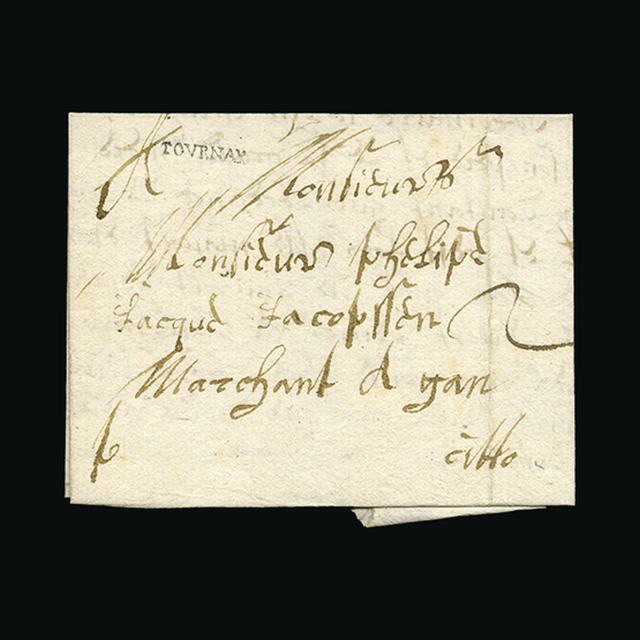 TOURNAY
A Monsieurs
Monsieur phelipe
Jacque Jacopssen
Marchant A gan
citto